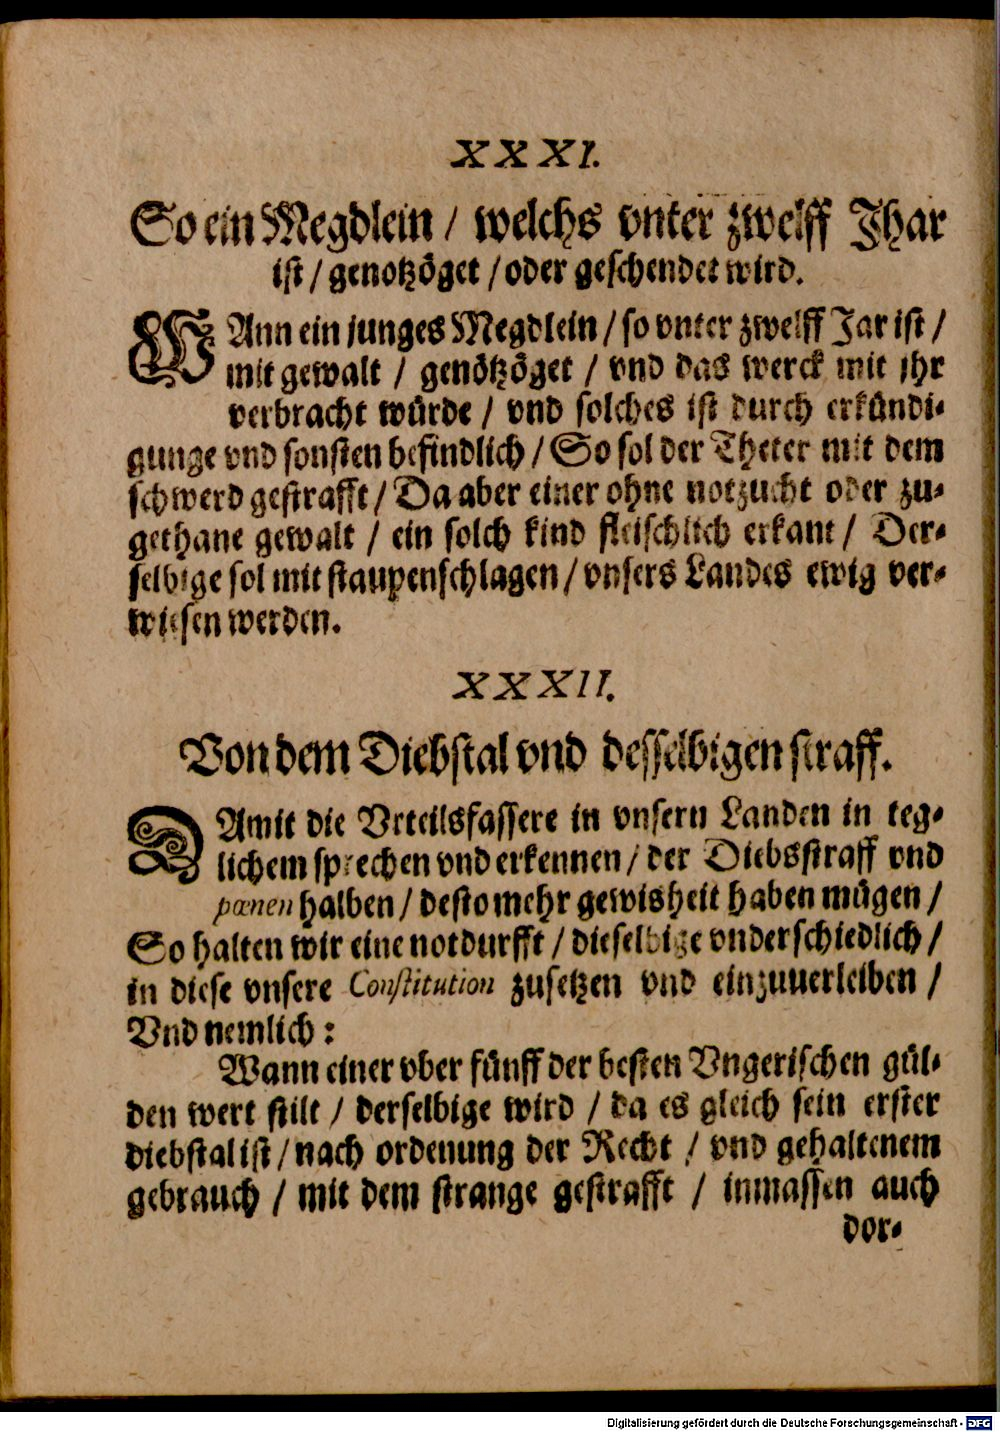 XXXI.
So ein Megdlein / welchs vnter zwelff Jhar
ist / genotzöget / oder geschendet wird.
WAnn ein junges Megdlein / so vnter zwelff Jar ist /
mit gewalt / genötzöget / vnd das werck mit jhr
verbracht würde / vnd solches ist durch erkündi-
gunge vnd sonsten befindlich / So sol der Theter mit dem
schwerd gestrafft / Da aber einer ohne notzucht oder zu-
gethane gewalt / ein solch kind fleischlich erkant / Der-
selbige sol mit staupenschlagen / vnsers Landes ewig ver-
wiesen werden.
XXXII.
Von dem Diebstal vnd desselbigen straff.
DAmit die Vrteilsfassere in vnsern Landen in teg-
lichem sprechen vnd erkennen / der Diebsstraff vnd
pœnen halben / desto mehr gewisheit haben mügen /
So halten wir eine notdurfft / dieselbige vnderschiedlich /
in diese vnsere Constitution zusetzen vnd einzuuerleiben /
Vnd nemlich :
Wann einer vber fünff der besten Vngerischen gül-
den wert stilt / derselbige wird / da es gleich sein erster
diebstal ist / nach ordenung der Recht / vnd gehaltenem
gebrauch / mit dem strange gestrafft / inmassen auch
dor-
Digitalisierung gefördert durch die Deutsche Forschungsgemeinschaft - DFG